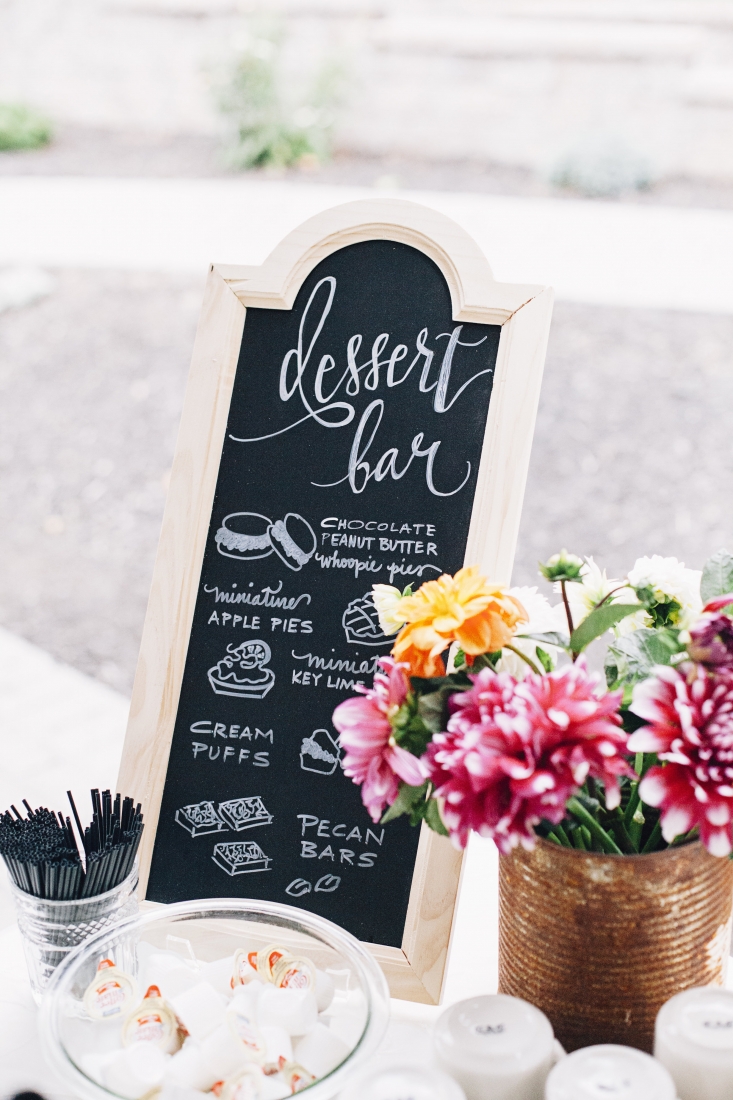 dessert
bar
CHOCOLATE
PEANUT BUTTER
whoopie pies
miniature
APPLE PIES
KEY LIME
CREAM
PUFFS
PECAN
BARS